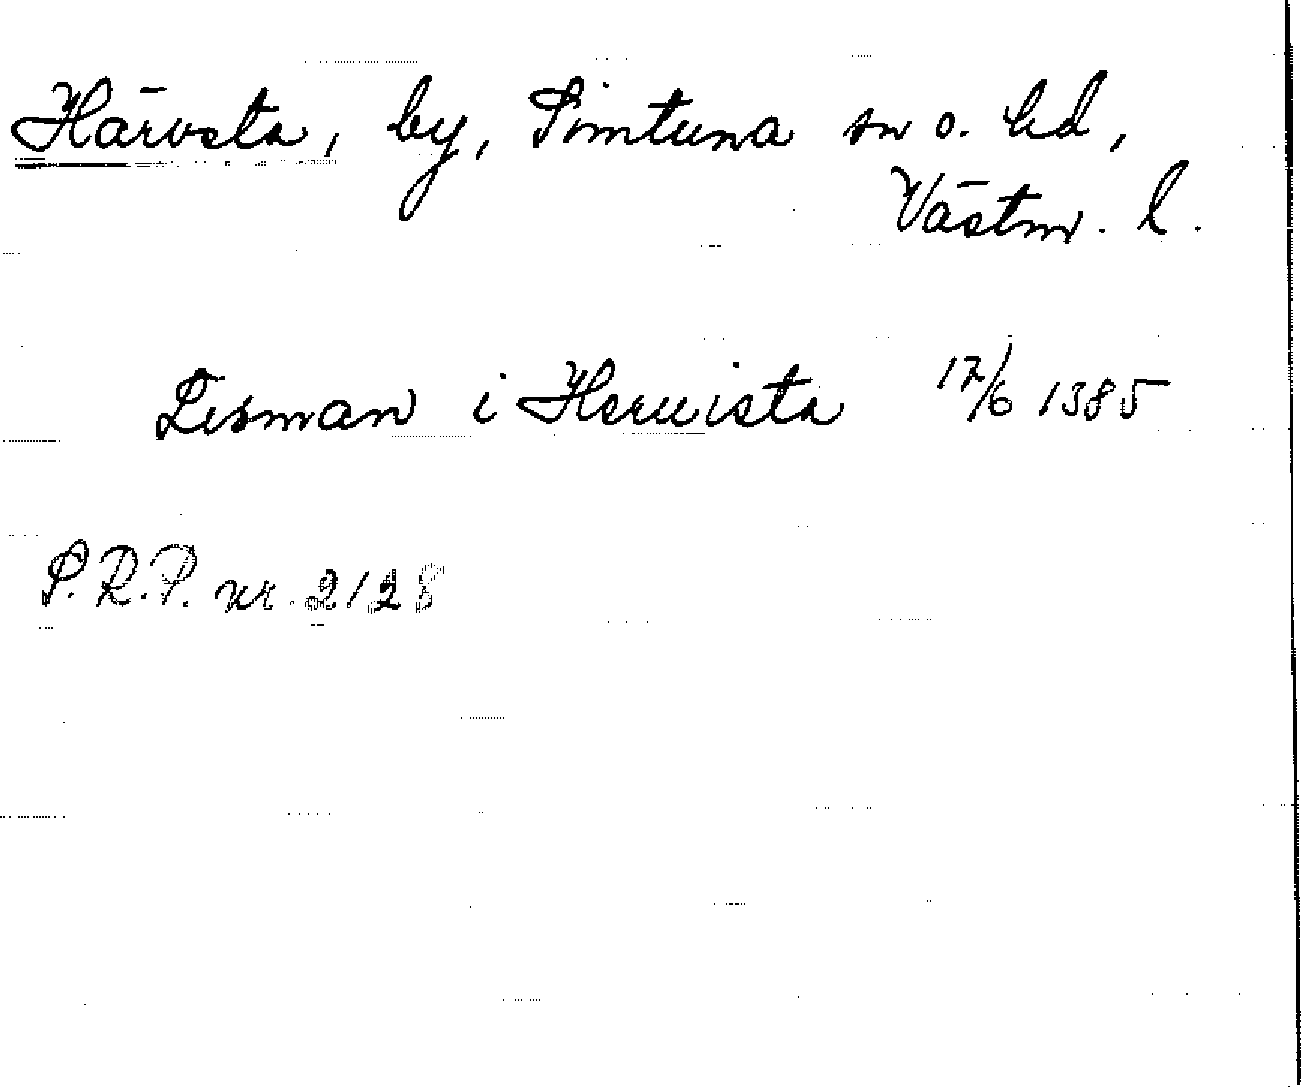 Härvsta, by, Simtuna sn o. hd,
Västm. l.
Lesman i Heruista 17/6 1385
S.R.P. nr. 2128